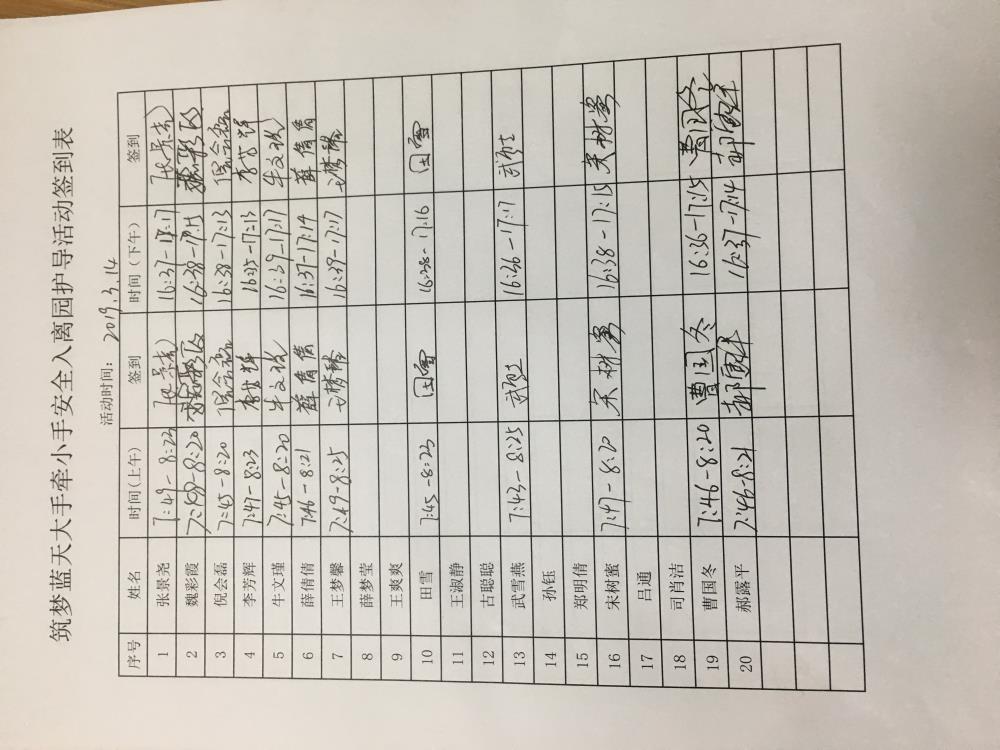 筑梦蓝天大手牵小手安全入离园护导活动签到表
活动时间： 2019.3.14
序号 姓名 时间(上午) 签到 时间（下午） 签到
1 张景尧 7:49-8:23 张景尧 16:37-17:17 张景尧
2 魏彩霞 魏彩霞 16:38-17:15 魏彩霞
3 倪会磊 7:45-8:20 倪会磊 16:38-17:13 倪会磊
4 李芳辉 7:47-8:23 李芳辉 16:35-17:13 李芳辉
5 牛文瑾 7:45-8:20 牛文瑾 16:39-17:17 牛文瑾
6 薛倩倩 7:46-8:21 薛倩倩 16:37-17:14 薛倩倩
7 王梦馨 7:49-8:25 王梦馨 16:39-17:17 王梦馨
8 薛梦莹
9 王爽爽
10 田雪 7:45-8:23 田雪 16:38-17:16 田雪
11 王淑静
12 古聪聪
13 武雪燕 7:43-8:25 16:36-17:17
14 孙钰
15 郑明倩
16 宋树蜜 7:47-8:20 宋树蜜 16:38-17:15 宋树蜜
17 吕通
18 司肖洁
19 曹国冬 7:46-8:20 曹国冬 16:36-17:15 曹国冬
20 郝露平 7:46-8:21 16:37-17:14